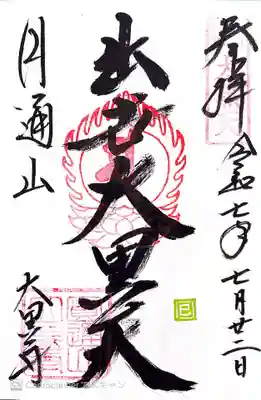 奉拝 令和七年七月廿二日
出世大黒天
円通山
大黒寺
巳